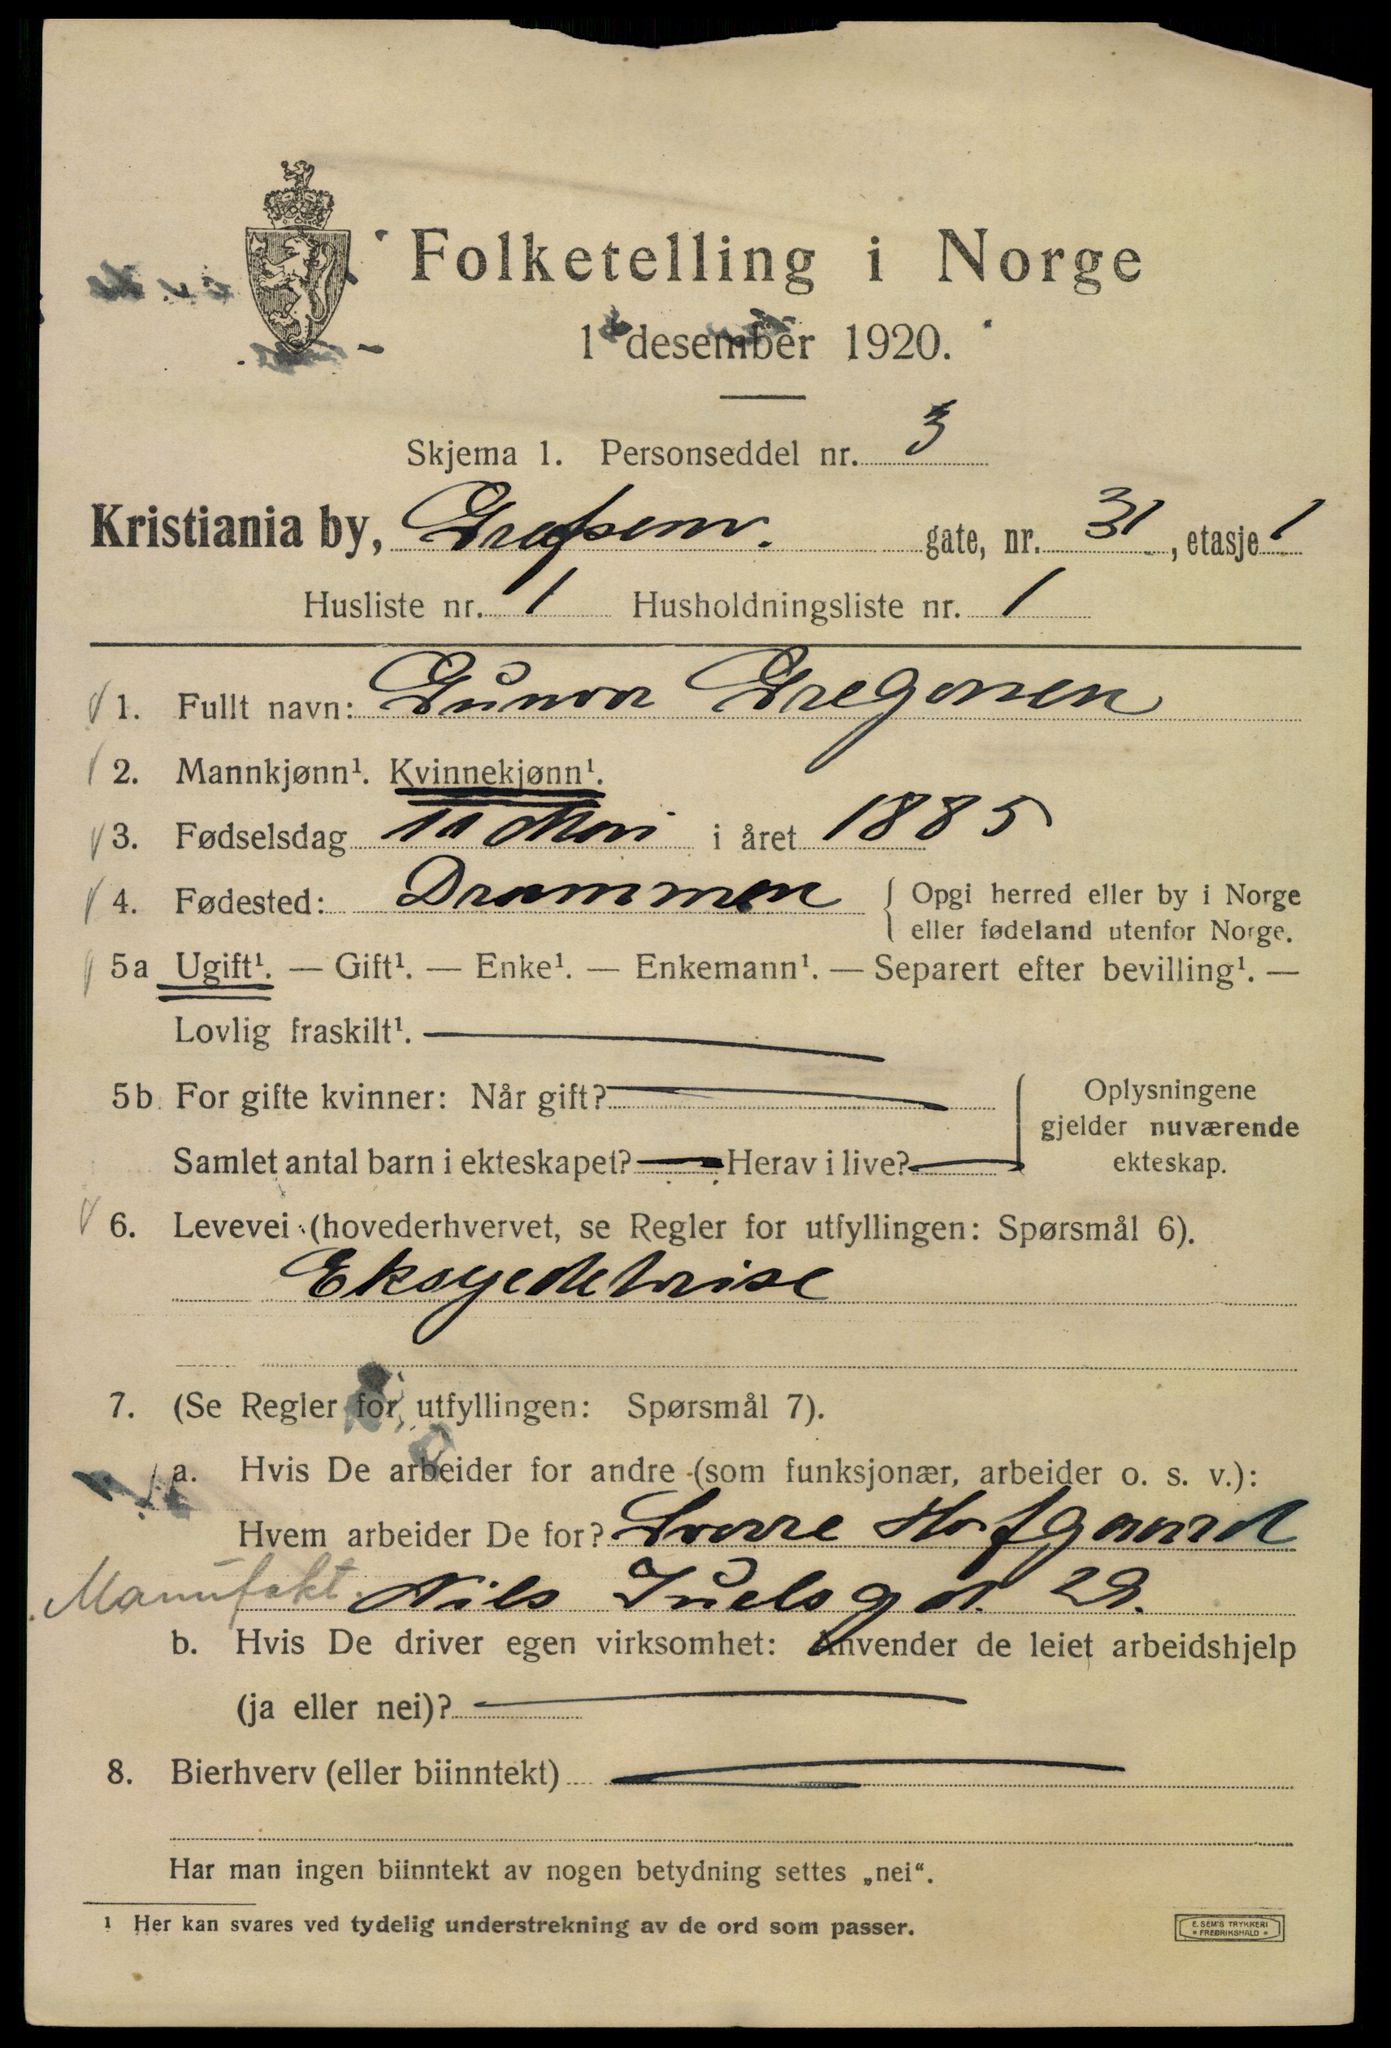 Folketelling i Norge
1 desember 1920.
Skjema 1. Personseddel nr. 3
Kristiania by, Grefsenv. gate, nr. 31, etasje 1
Husliste nr. 1 Husholdningsliste nr. 1
1. Fullt navn: Gunvor Gregersen
2. Mannkjønn¹. Kvinnekjønn¹.
3. Fødselsdag 11 Mai i året 1885
4. Fødested: Drammen { Opgi herred eller by i Norge
eller fødeland utenfor Norge.
5a Ugift¹. — Gift¹. — Enke¹. — Enkemann¹. — Separert efter bevilling¹. —
Lovlig fraskilt¹.
5b. For gifte kvinner: Når gift?
Samlet antal barn i ekteskapet? — Herav i live? —
Oplysningene
gjelder nuværende
ekteskap.
6. Levevei (hovederhvervet, se Regler for utfyllingen: Spørsmål 6).
Ekspeditrise
7. (Se Regler for utfyllingen: Spørsmål 7).
a. Hvis De arbeider for andre (som funksjonær, arbeider o. s. v.):
Hvem arbeider De for? Sverre Hofgaard
Manufakt. Nils Juelsgd. 29.
b. Hvis De driver egen virksomhet: Anvender de leiet arbeidshjelp
(ja eller nei)?
8. Bierhverv (eller biinntekt)
Har man ingen biinntekt av nogen betydning settes „nei“.
1 Her kan svares ved tydelig understrekning av de ord som passer.
E. SEM'S TRYKKERI
* FREDRIKSHALD *